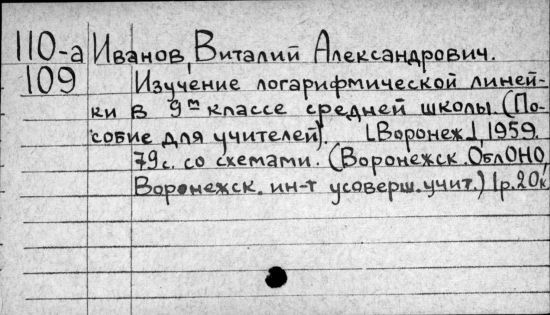 110-а Иванов, Виталий Александрович.
109 Изучение логарифмической линей-
ки в 9ᵐ классе средней школы. (По-
собие для учителей). [Воронеж], 1959.
79с. со схемами. (Воронежск. ОблОНО,
Воронежск. ин-т усоверш. учит.) 1р.20к